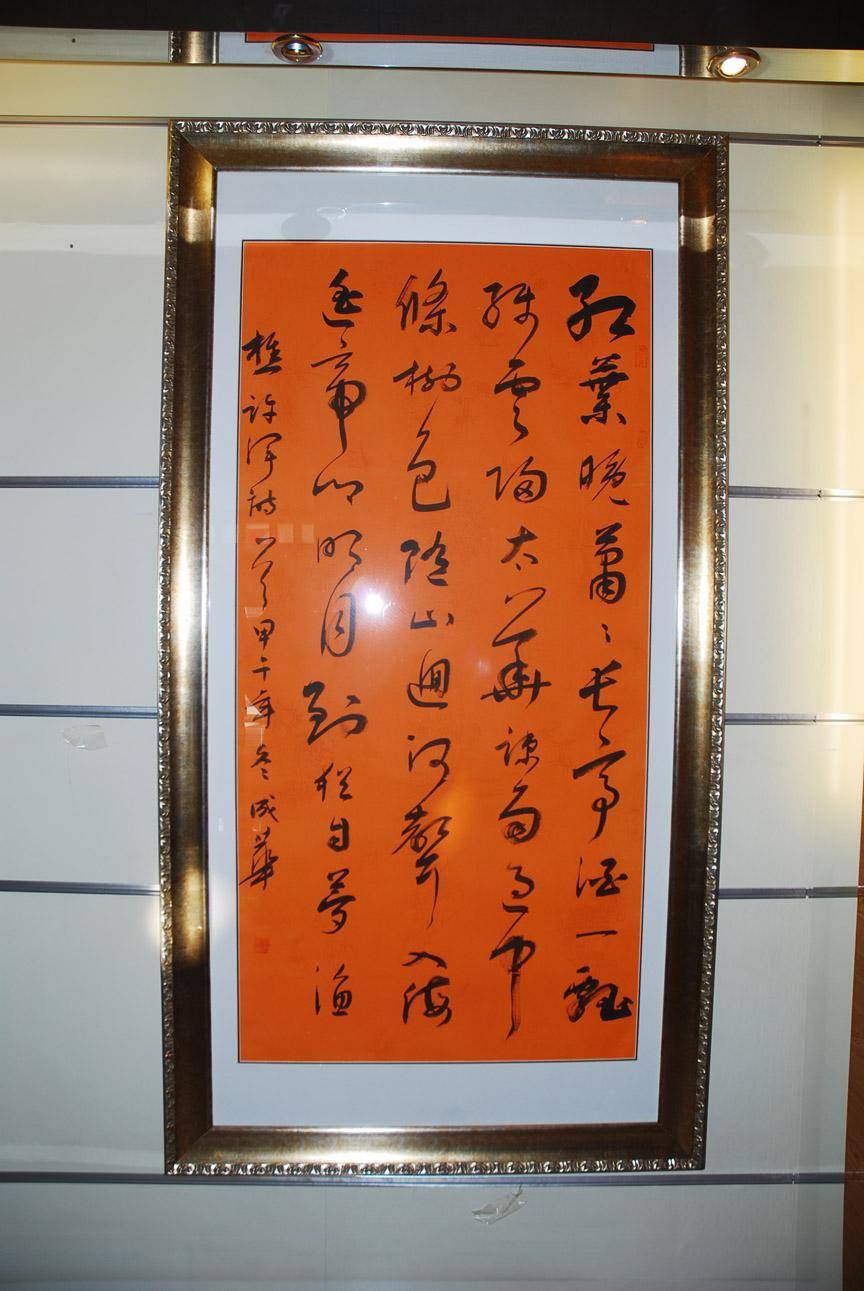 紅葉晚蕭〻長亭酒一瓢
殘雲歸太華疎雨過中
條樹色隨山迥河聲入海
遙帝鄉明日到猶自夢漁
樵許渾詩一首甲午年冬成華